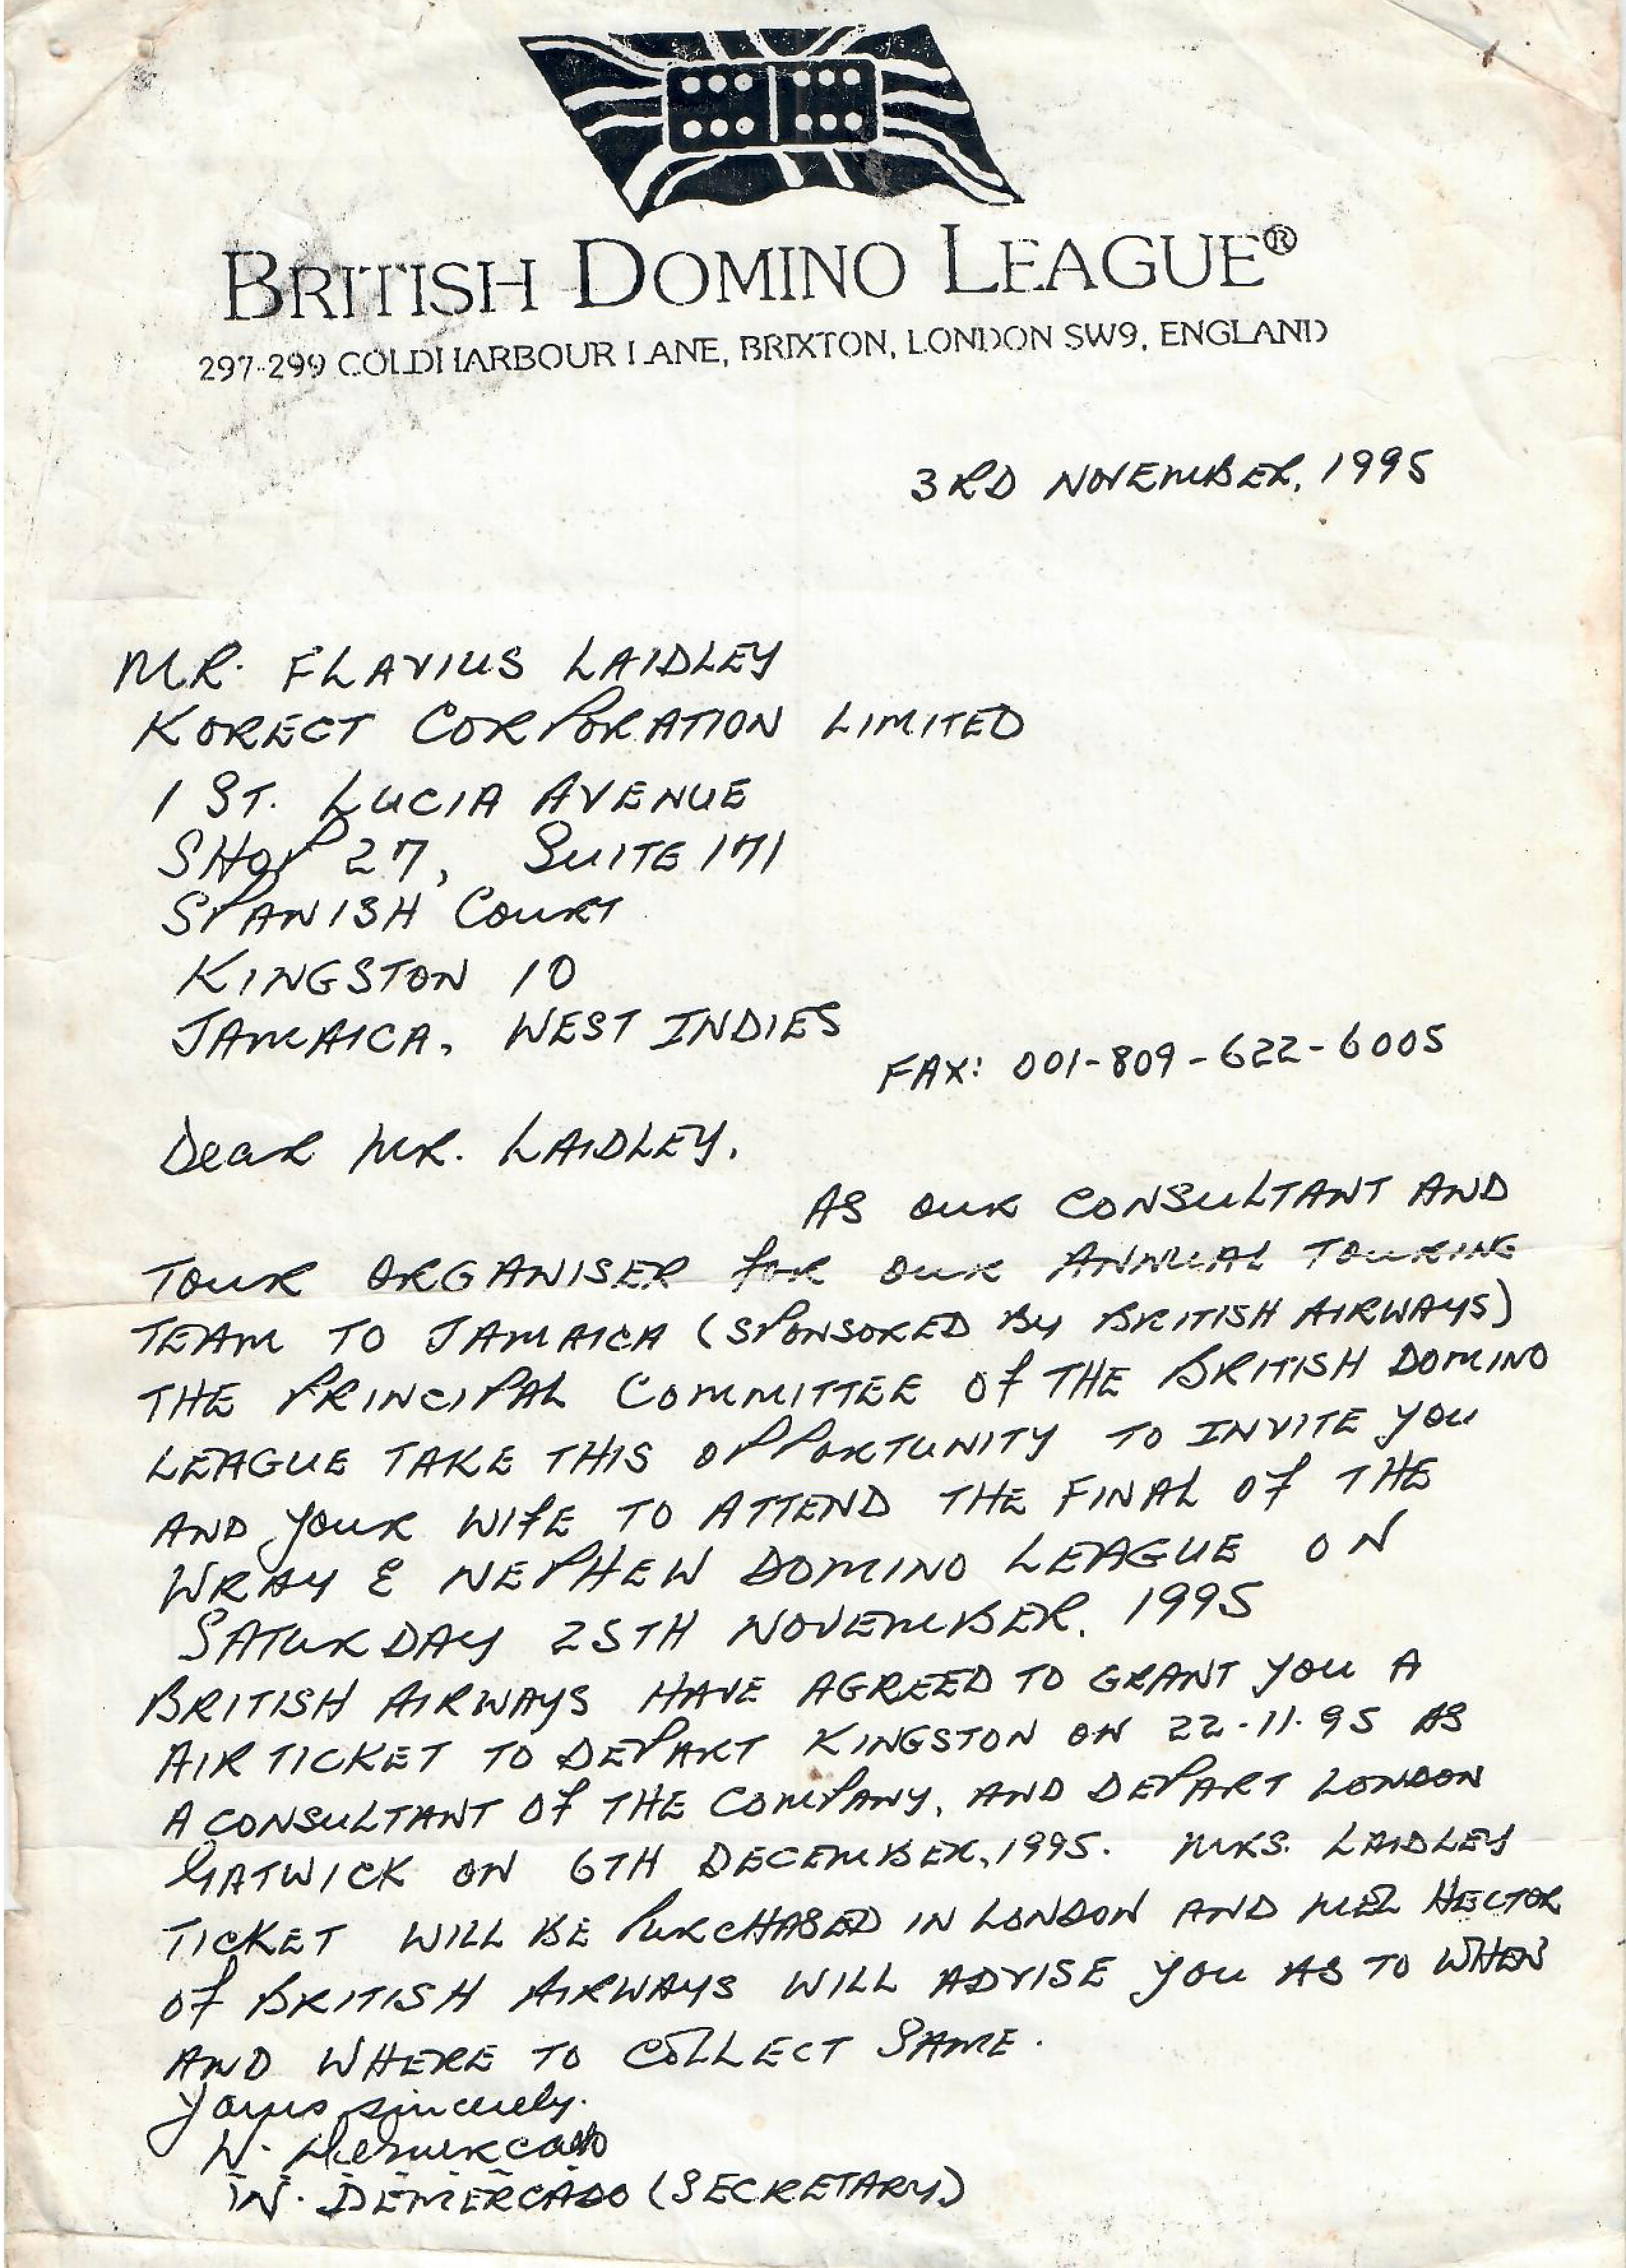 BRITISH DOMINO LEAGUE®
297-299 COLDHARBOUR LANE, BRIXTON, LONDON SW9, ENGLAND
3RD NOVEMBER, 1995
MR. FLAVIUS LAIDLEY
KORECT CORPORATION LIMITED
1 ST. LUCIA AVENUE
SHOP 27, SUITE 171
SPANISH COURT
KINGSTON 10
JAMAICA, WEST INDIES
FAX: 001-809-622-6005
Dear MR. LAIDLEY,
AS OUR CONSULTANT AND
TOUR ORGANISER for OUR ANNUAL TOURING
TEAM TO JAMAICA (SPONSORED By BRITISH AIRWAYS)
THE PRINCIPAL COMMITTEE Of THE BRITISH DOMINO
LEAGUE TAKE THIS OPPORTUNITY TO INVITE YOU
AND YOUR WIFE TO ATTEND THE FINAL Of THE
WRAY & NEPHEW DOMINO LEAGUE ON
SATURDAY 25TH NOVEMBER, 1995
BRITISH AIRWAYS HAVE AGREED TO GRANT YOU A
AIR TICKET TO DEPART KINGSTON ON 22-11-95 AS
A CONSULTANT Of THE COMPANY, AND DEPART LONDON
GATWICK ON 6TH DECEMBER, 1995. MRS. LAIDLEY
TICKET WILL BE PURCHASED IN LONDON AND MEL HECTOR
Of BRITISH AIRWAYS WILL ADVISE YOU AS TO WHEN
AND WHERE TO COLLECT SAME.
Yours sincerely.
W. Demercado
W. DEMERCADO (SECRETARY)